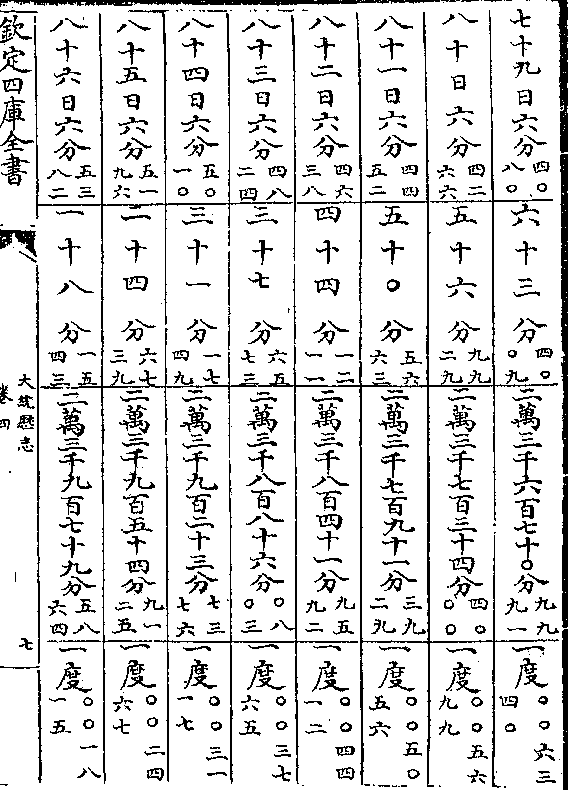 七十九日六分四〇八〇 六十三分四〇〇九 二萬三千六百七十〇分九九九一 一度〇〇六三四〇
八十日六分四二六六 五十六分九九二九 二萬三千七百三十四分四〇〇〇 一度〇〇五六九九
八十一日六分四四五二 五十〇分五六六三 二萬三千七百九十一分三九二九 一度〇〇五〇五六
八十二日六分四六三八 四十四分一二一一 二萬三千八百四十一分九五九二 一度〇〇四四一二
八十三日六分四八二四 三十七分六五七三 二萬三千八百八十六分〇八〇三 一度〇〇三七六五
八十四日六分五〇一〇 三十一分一七四九 二萬三千九百二十三分七三七六 一度〇〇三一一七
八十五日六分五一九六 二十四分六七三九 二萬三千九百五十四分九一二五 一度〇〇二四六七
八十六日六分五三八二 一十八分一五四三 二萬三千九百七十九分五八六四 一度〇〇一八一五
欽定四庫全書
大統厯志
卷四
七